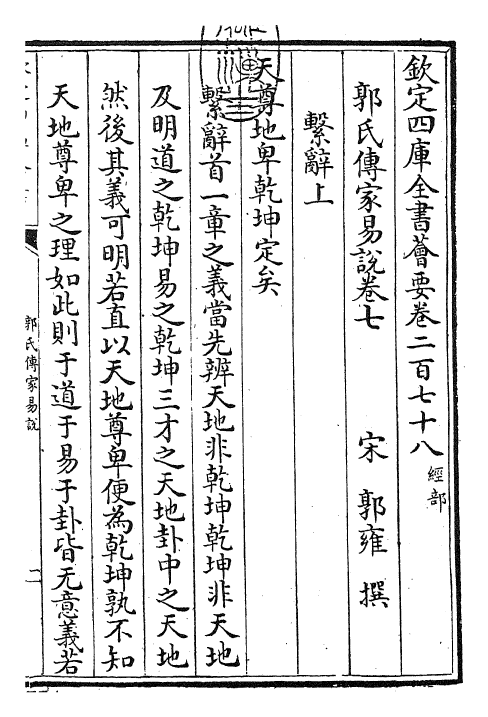 欽定四庫全書薈要卷二百七十八 經部
郭氏傳家易說卷七 宋 郭雍 撰
繫辭上
天尊地卑乾坤定矣
繫辭首一章之義當先辨天地非乾坤乾坤非天地
及明道之乾坤易之乾坤三才之天地卦中之天地
然後其義可明若直以天地尊卑便為乾坤孰不知
天地尊卑之理如此則于道于易于卦皆无意義若
郭氏傳家易說